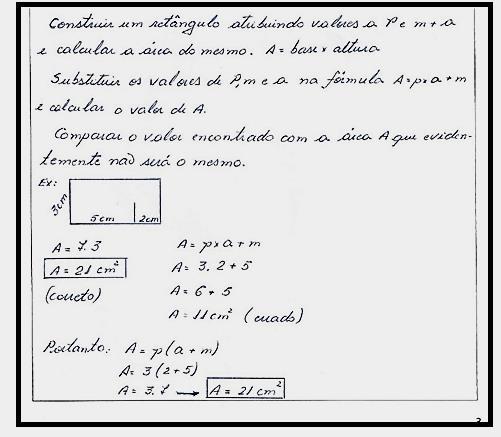 Construir um retângulo atribuindo valores a P e m + a
e calcular a área do mesmo. A = base x altura
Substituir os valores de P, m e a na fórmula A = p x a + m
e calcular o valor de A.
Comparar o valor encontrado com a área A que eviden-
temente não será o mesmo.
Ex:
3cm
5cm 2cm
A = 7.3
A = 21 cm²
(correto)
A = p x a + m
A = 3.2 + 5
A = 6 + 5
A = 11 cm² (errado)
Portanto: A = p(a + m)
A = 3(2 + 5)
A = 3.7 → A = 21 cm²